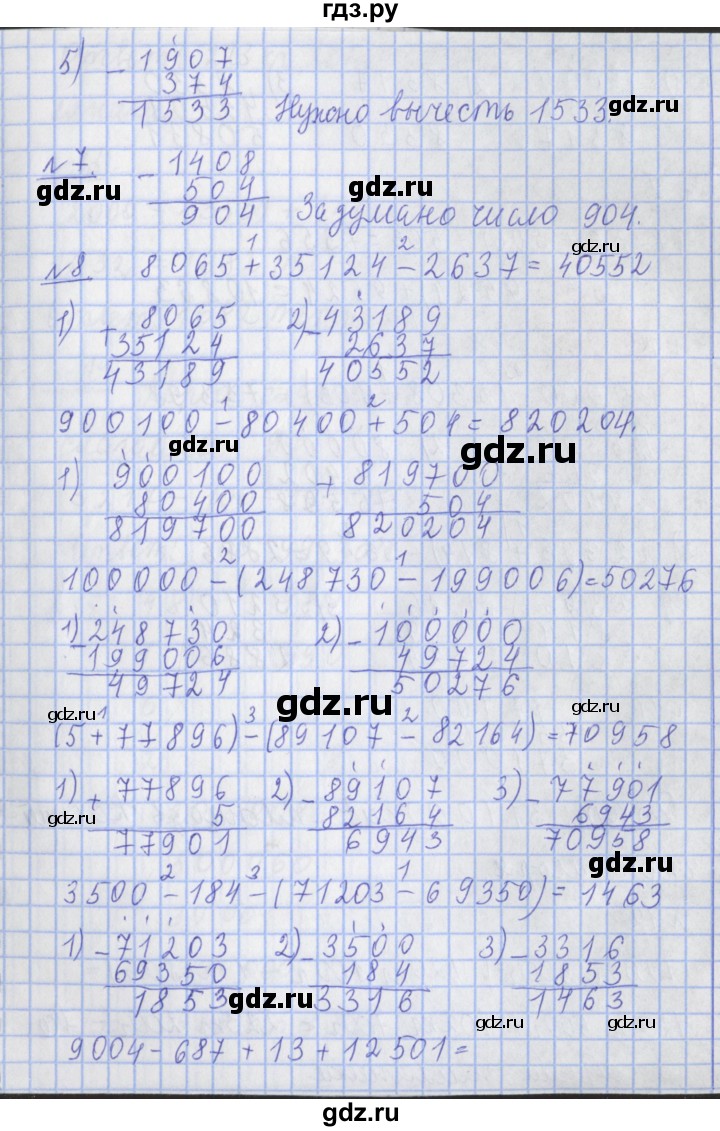 гдз.ру
5) - 1907
374
1533 Нужно вычесть 1533.
gdz.ru
№7. - 1408
gdz.ru
504
gdz.ru
904 Задумано число 904.
gdz.ru
№8. 8065 + 35124 - 2637 = 40552
1 2
1) + 8065 2) - 43189
35124 2637
43189 40552
900100 - 80400 + 504 = 820204.
1 2
gdz.ru
gdz.ru
1) 900100 + 819700
80400 504
819700 820204
100000 - (248730 - 199006) = 50276
2 1
1) - 248730 2) - 100000
199006 49724
49724 50276
gdz.ru
gdz.ru
gdz.ru
(5 + 77896) - (89107 - 82164) = 70958
1 3 2
1) + 77896 2) - 89107 3) - 77901
5 82164 6943
77901 6943 70958
gdz.ru
3500 - 184 - (71203 - 69350) = 1463
2 3 1
1) - 71203 2) - 3500 3) - 3316
69350 184 1853
1853 3316 1463
gdz.ru
gdz.ru
gdz.ru
9004 - 687 + 13 + 12501 =
gdz.ru